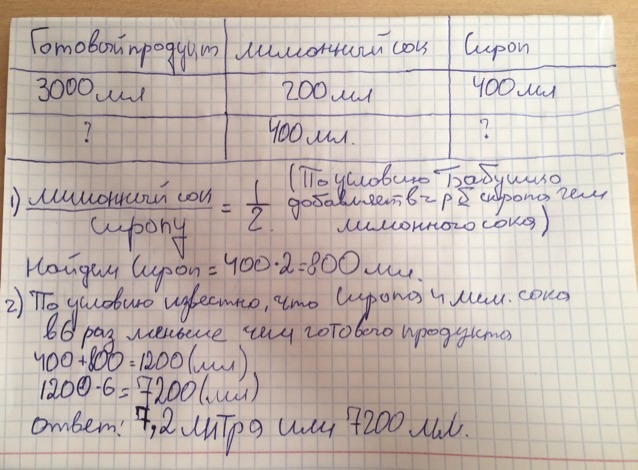 Готовый продукт лимонный сок Сироп
3000мл 200мл 400мл
? 400мл. ?
1) лимонный сок / сиропу = 1/2. (По условию Бабушка
добавляет в 2 р б сиропа чем
лимонного сока)
Найдем Сироп = 400·2=800мл.
2) По условию известно, что Сиропа и лим. сока
в 6 раз меньше чем готового продукта
400+800=1200(мл)
1200·6=7200(мл)
Ответ: 7,2 литра или 7200мл.